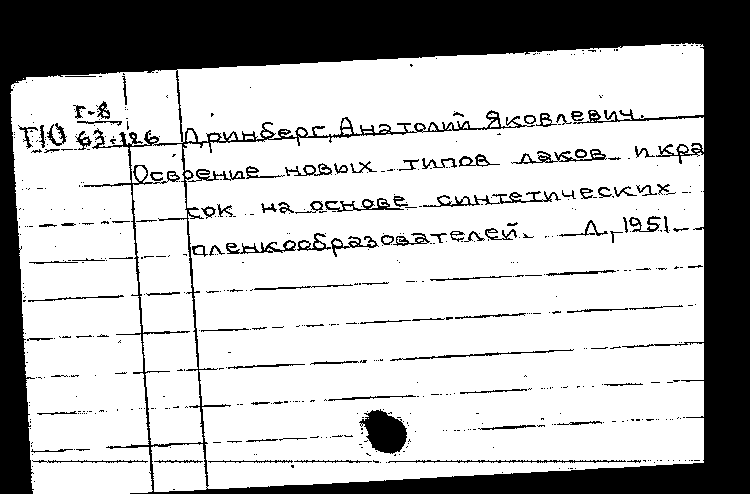 Г-8
Т/О 63-126 Дринберг, Анатолий Яковлевич.
Освоение новых типов лаков и кра
сок на основе синтетических
пленкообразователей. Л., 1951.